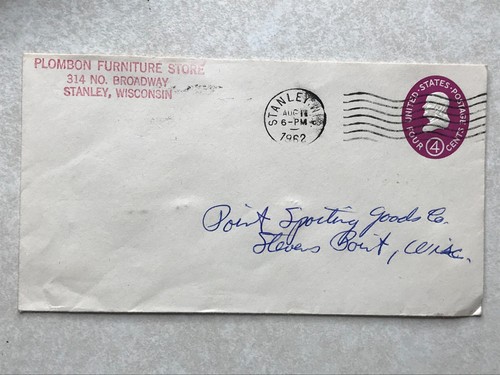 PLOMBON FURNITURE STORE
314 NO. BROADWAY
STANLEY, WISCONSIN
STANLEY, WIS
AUG
6-PM
1962
UNITED·STATES·POSTAGE
FOUR 4 CENTS
Point Sporting Goods Co.
Stevens Point, Wisc.